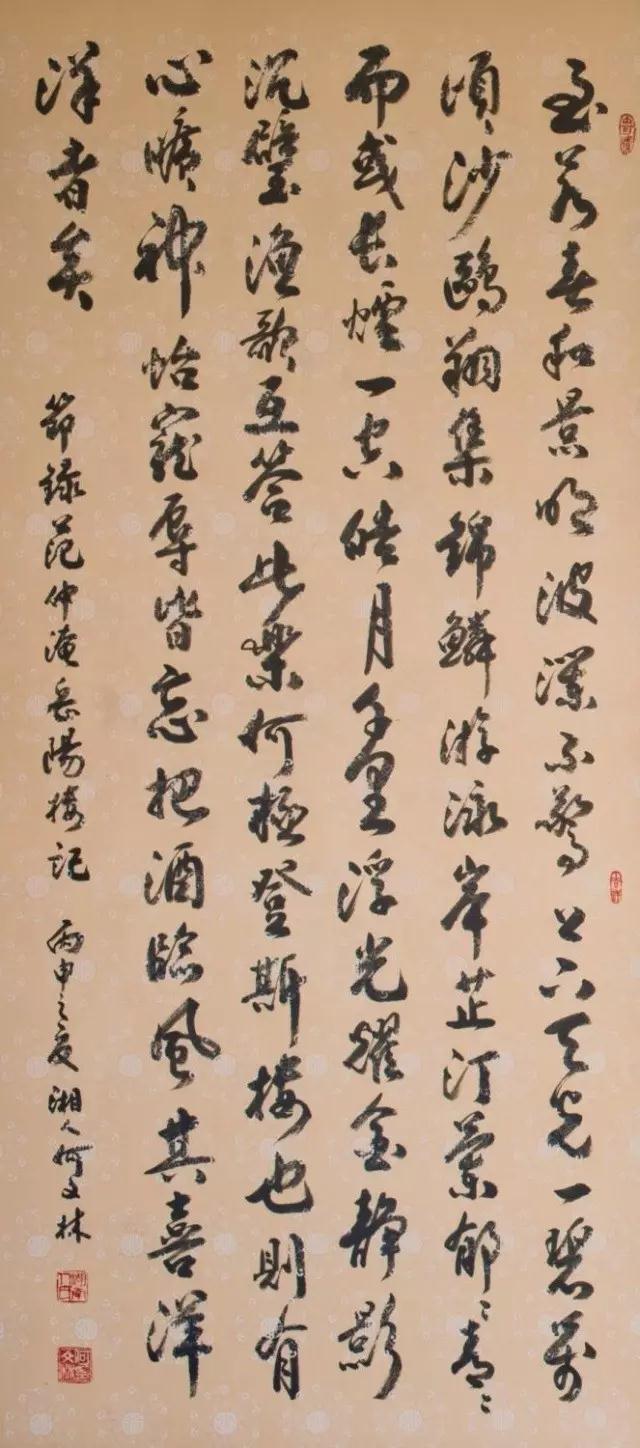 至若春和景明波瀾不驚上下天光一碧萬
頃沙鷗翔集錦鱗游泳岸芷汀蘭郁〻青〻
而或長煙一空皓月千里浮光耀金靜影
沉璧漁歌互答此樂何極登斯樓也則有
心曠神怡寵辱皆忘把酒臨風其喜洋
洋者矣
節錄范仲淹岳陽樓記 丙申之夏湘人何文林